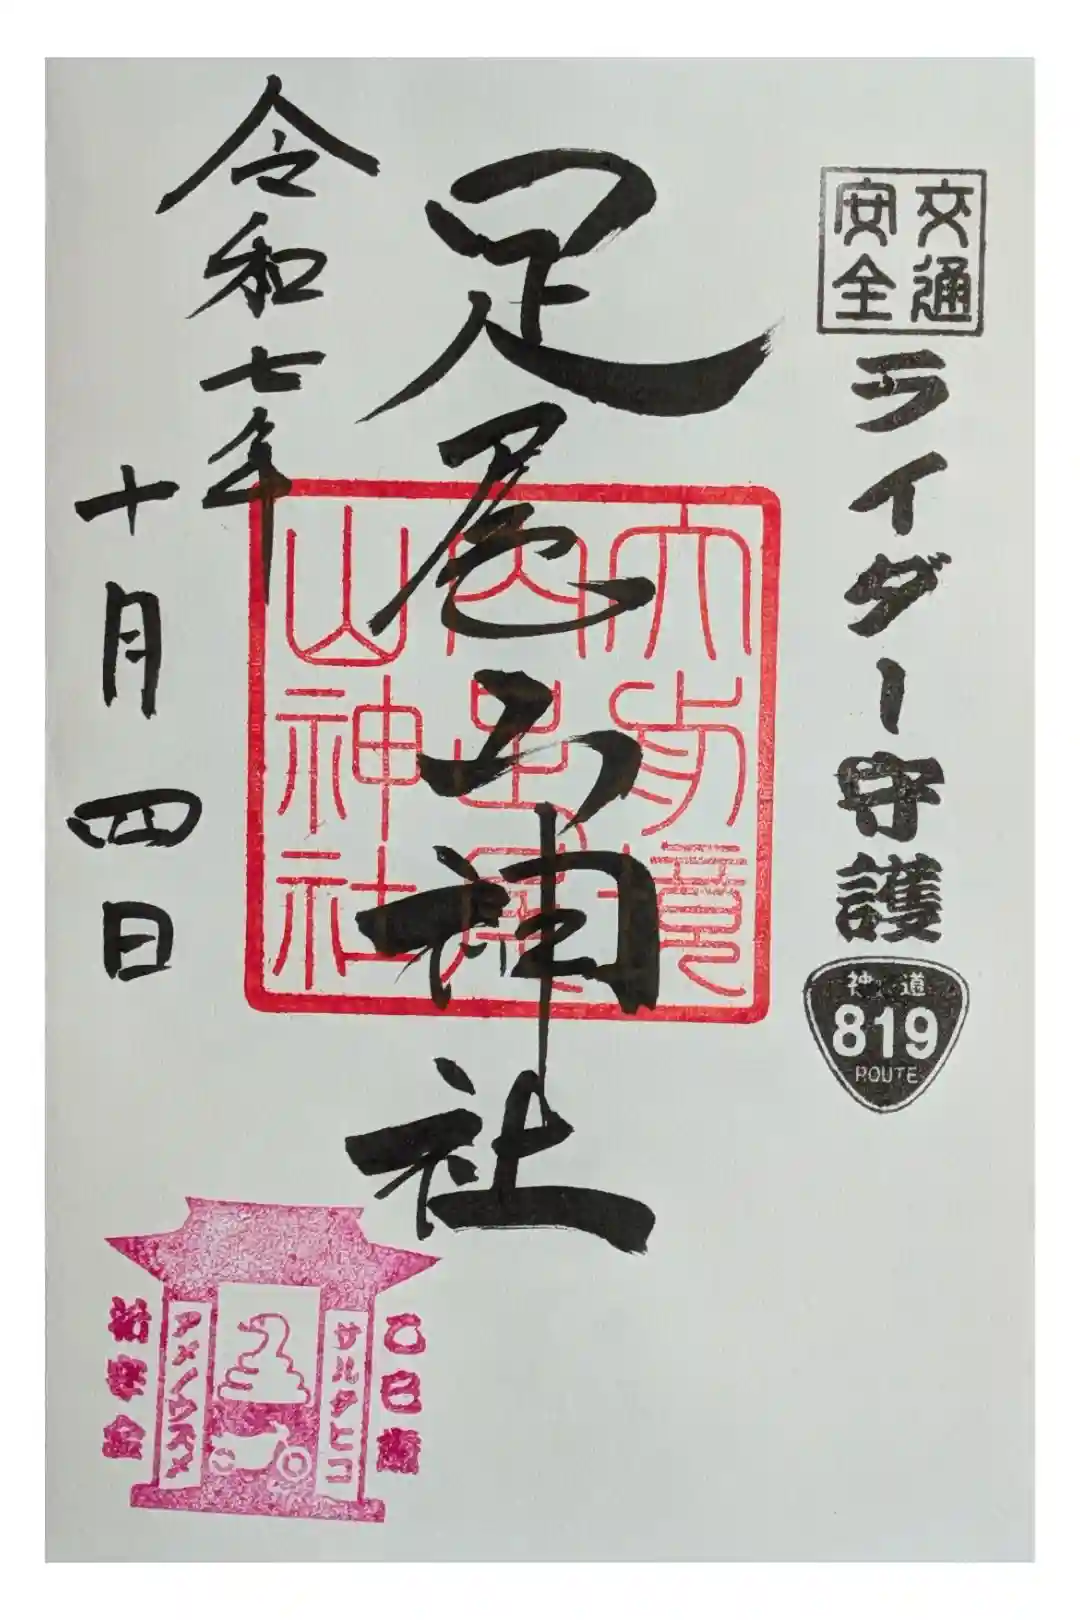 交通
安全
ライダー守護
神道
819
ROUTE
足尾山神社
大前境
内足尾
山神社
令和七年
十月四日
乙巳歳
サルタヒコ
アメノウズメ
祈安全